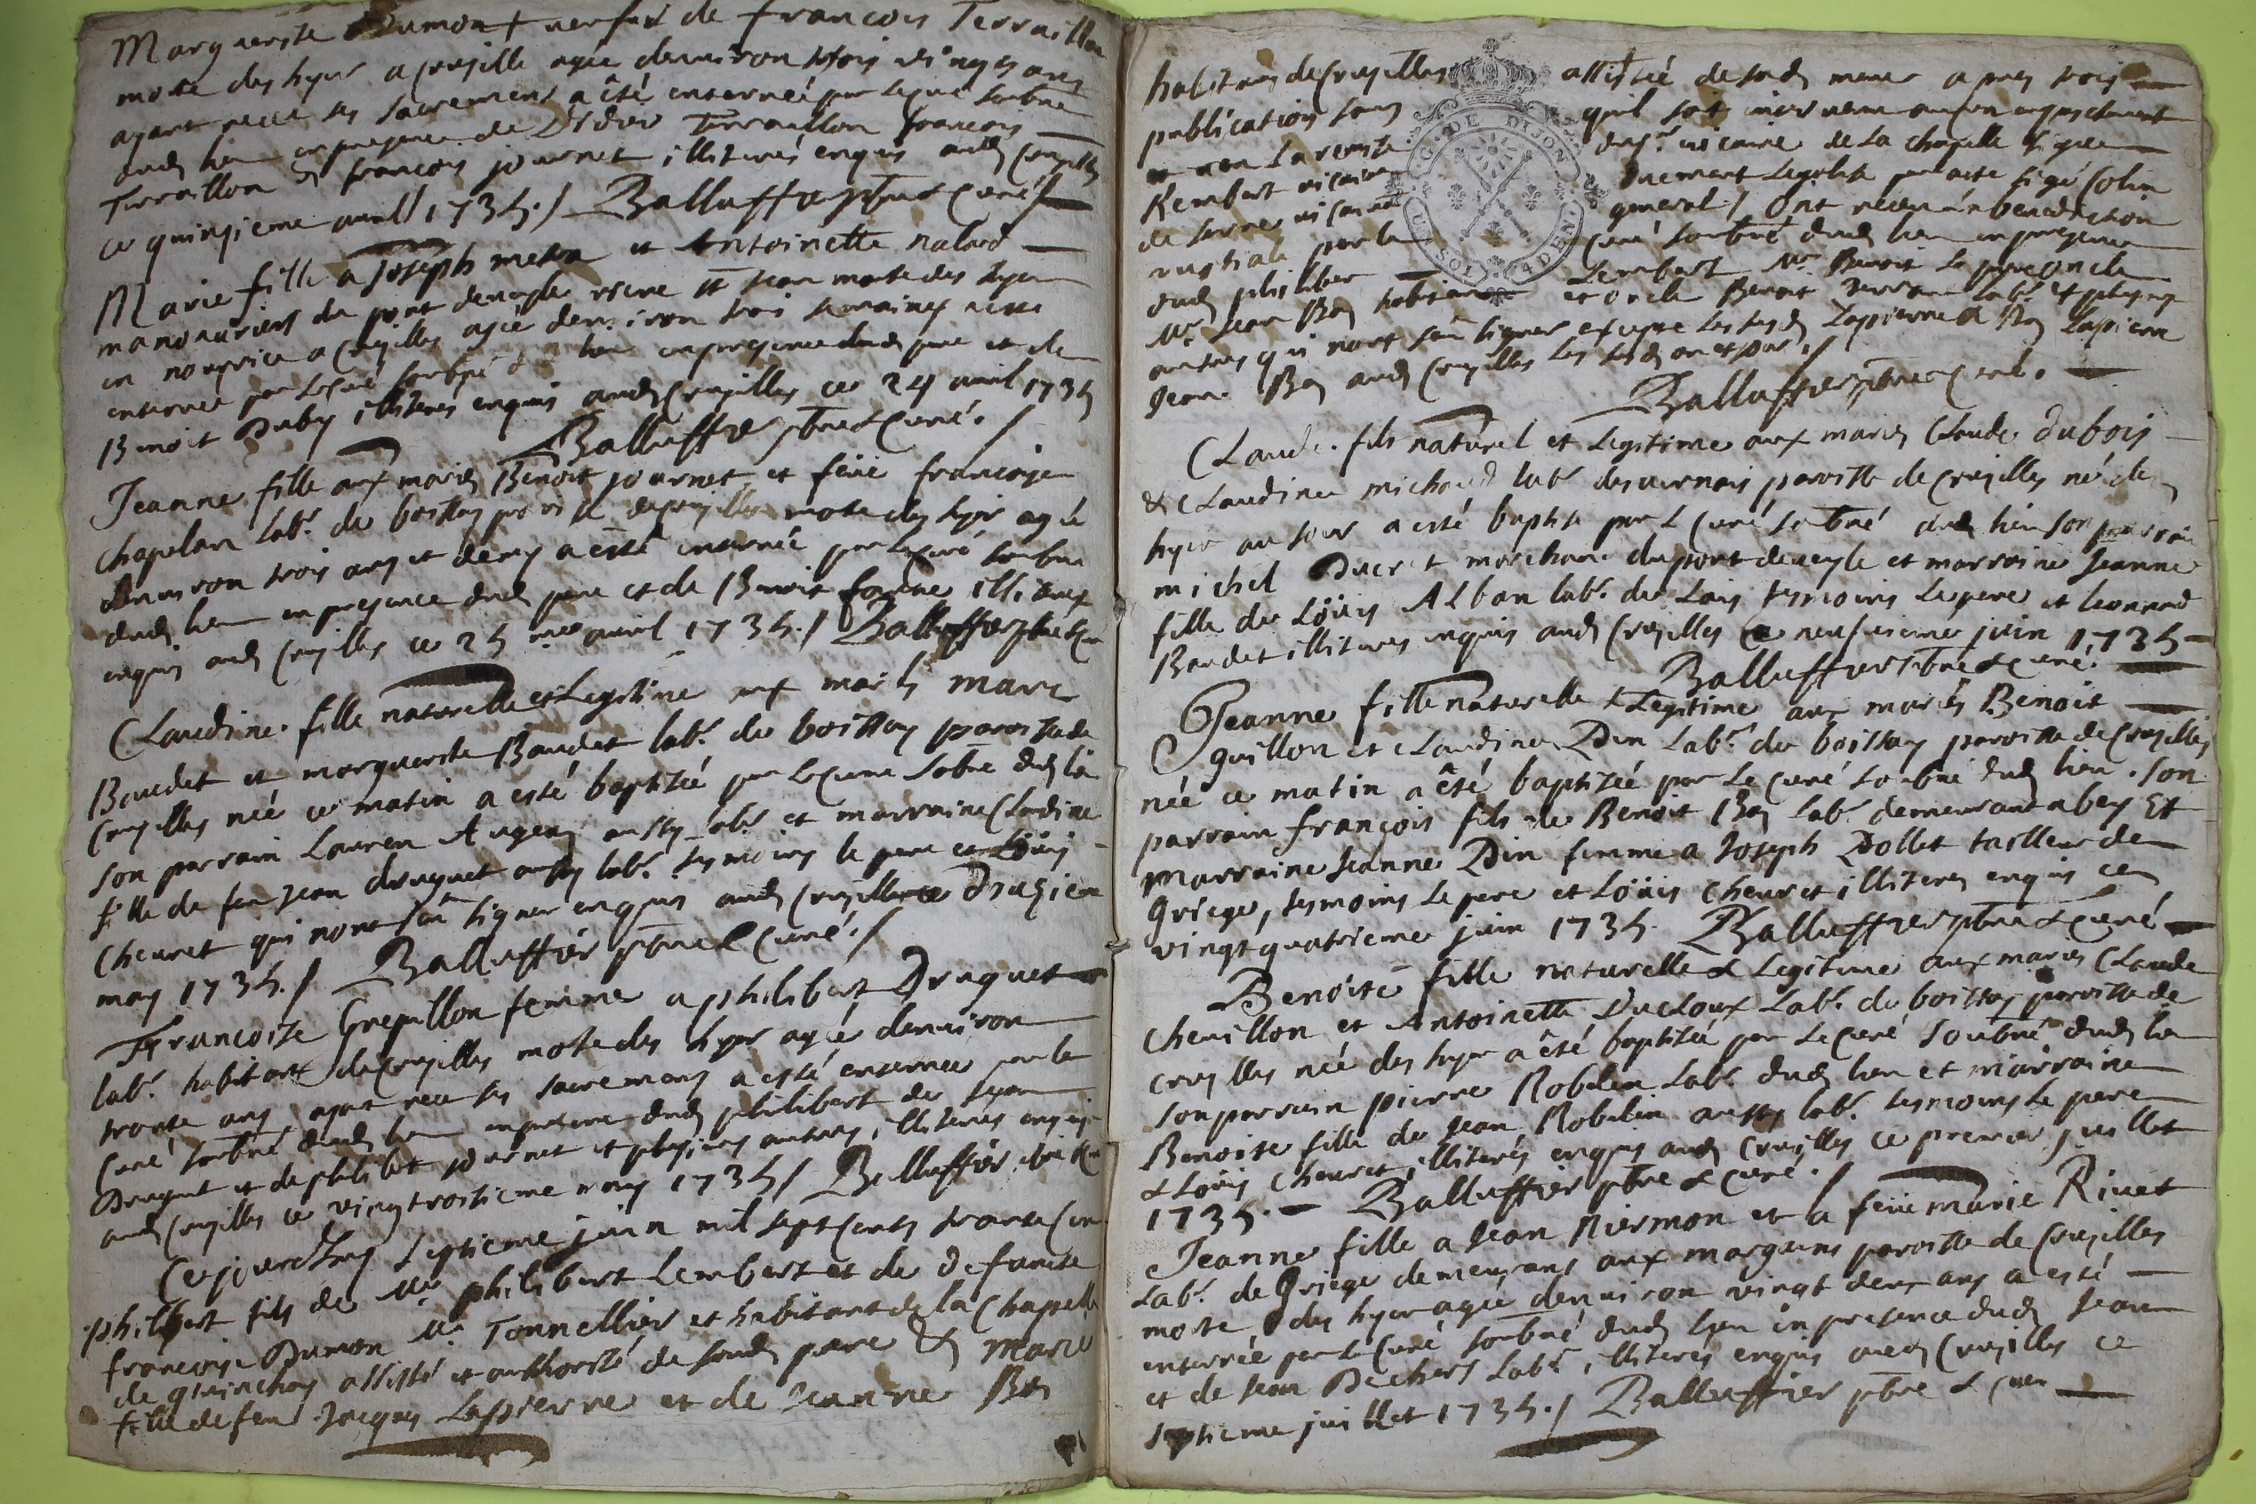 Marguerite Dumont veufve de françois Terraillon
morte des hyer a Crusille agée denviron trois vingts ans
ayant receu ses sacremens a êté enterreé par le curé soubné
dud lieu en presence de Terraillon françois
Terraillon et françois journet illiterés enquis aud Crusilles
ce quinzieme avril 1735./ Balluffier pbre & Curé /
Marie fille a Joseph et Antoinette nalard
manouvriers du pont deveyle morte des hyer
en nourrice a Crusilles agée denviron trois semaines a esté
enterreé par le Curé soubné du lieu en presence dud pere et de
Benoit Duby illiteres enquis aud Crusilles ce 24 avril 1735
Balluffier pbre & Curé. /
Jeanne fille aux mariés Benoit journet et feüe françoise
Chapelan lab.r de boissey paroisse de Crusilles morte des hyer agée
denviron trois ans et demy a esté enterrée par le Curé soubné
dud lieu en presence dud pere et de Benoit illiteres
enquis aud Crusilles ce 25 me avril 1735./ Balluffier pbre & Cu
Claudine fille naturelle et Legitime aux mariés marc
Baudet et marguerite Baudet lab.r de boissey paroisse de
Crusilles née ce matin a esté baptisée par le Curé sobné dud lieu
son parrain Lauren aussy lab.r et marraine Claudine
fille de feu Jean druguet aussy lab.r tesmoins le pere et Löuis
Cheuret qui nont sçu signer enquis aud Crusilles ce
may 1735./ Balluffier pbre & Curé./
Françoise Grepillon femme a philibert Druguet
lab.r habitant de Crusilles morte des hyer agée denviron
trente ans ayant receu ses sacremens a esté enterrée par le
Curé soubné dud lieu en presence dud philibert de Jean
Druguet et de philibert journet et plusieurs autres illiteres enquis
aud Crusilles ce vingt troisieme may 1735/ Balluffier pbre & Cu
Cejourdhuy septieme juin mil sept Cents trente Cinq
philibert fils de M.e philibert Lembert et de defuncte
françoise Dumon M.e Tonnellier et habitant de la Chapelle
de guinchay assisté et authorisé de sond pere Et Marie
fille de feu Jacques Lapierre et de Jeanne Bey
habitans de Crusilles assistée de sad mere apres trois
publication sans quil soit intervenu aucun empeschement
Rembert vicaire de La Chapelle
duement Legalisé par acte signé Colin
de vicaire general / Ont receu la benediction
nuptiale par le Curé soubné dud lieu en presence
dud philibert Lembert M.e Benoit Lapierre oncle
M.e Jean Bey habitant et oncle Benoit lab.r et plusieurs
autres qui nont sçu signer excepté les susd Lapierre & Bey Lapierre
Jean Bey aud Crusilles les susd an et jour /
Balluffier pbre & Curé.
Claude fils naturel et Legitime aux mariés Claude dubois
& Claudine michaud lab.r des vernais paroisse de Crusilles né des
hyer au soir a esté baptisé par le Curé soubné dud lieu son parrain
michel Ducret marchand du pont deveyle et marraine Jeanne
fille de Löuis Alban lab.r de Lais tesmoins Le pere et leonard
Baudet illiteres enquis aud Crusilles Ce neufvieme juin 1735
Balluffier pbre & Curé.
Jeanne fille naturelle & Legitime aux mariés Benoit
guillon et Claudine Din Lab.r de boissey paroisse de Crusilles
née ce matin a êté baptizée par le Curé soubné dud lieu. son
parrain françois fils de Benoit Bey Lab.r demeurant a bey Et
marraine Jeanne Din femme a Joseph Dollet tailleur de
Griege, tesmoins Le pere et Löuis Cheuret illiteres enquis ce
vingt quatrieme juin 1735. Balluffier pbre & Curé
Benoite fille naturelle & Legitime aux mariés Claude
Cheuillon et Antoinette Ducloux Lab.r de boissey paroisse de
Crusilles née des hyer a êté baptisée par Le Curé soubné dud lieu
son parrain pierre Robelin Lab.r dud lieu et marraine
Benoite fille de Jean Robelin aussy lab.r tesmoins le pere
& Löuis Cheuret illiterés enquis aud Crusilles ce premier juillet
1735. Balluffier pbre & Curé. /
Jeanne fille a Jean Niermon et a feüe marie Rivet
Lab.r de Griege demeurans aux marguins paroisse de Crusilles
morte des hyer agée denviron vingt deux ans a esté
enterrée par le Curé soubné dud lieu en presence dud Jean
et de Jean Dechers Lab.r illiteres enquis aud Crusilles ce
septieme juillet 1735./ Balluffier pbre & Curé
G. DE DIJON
UN SOL 4 DENI